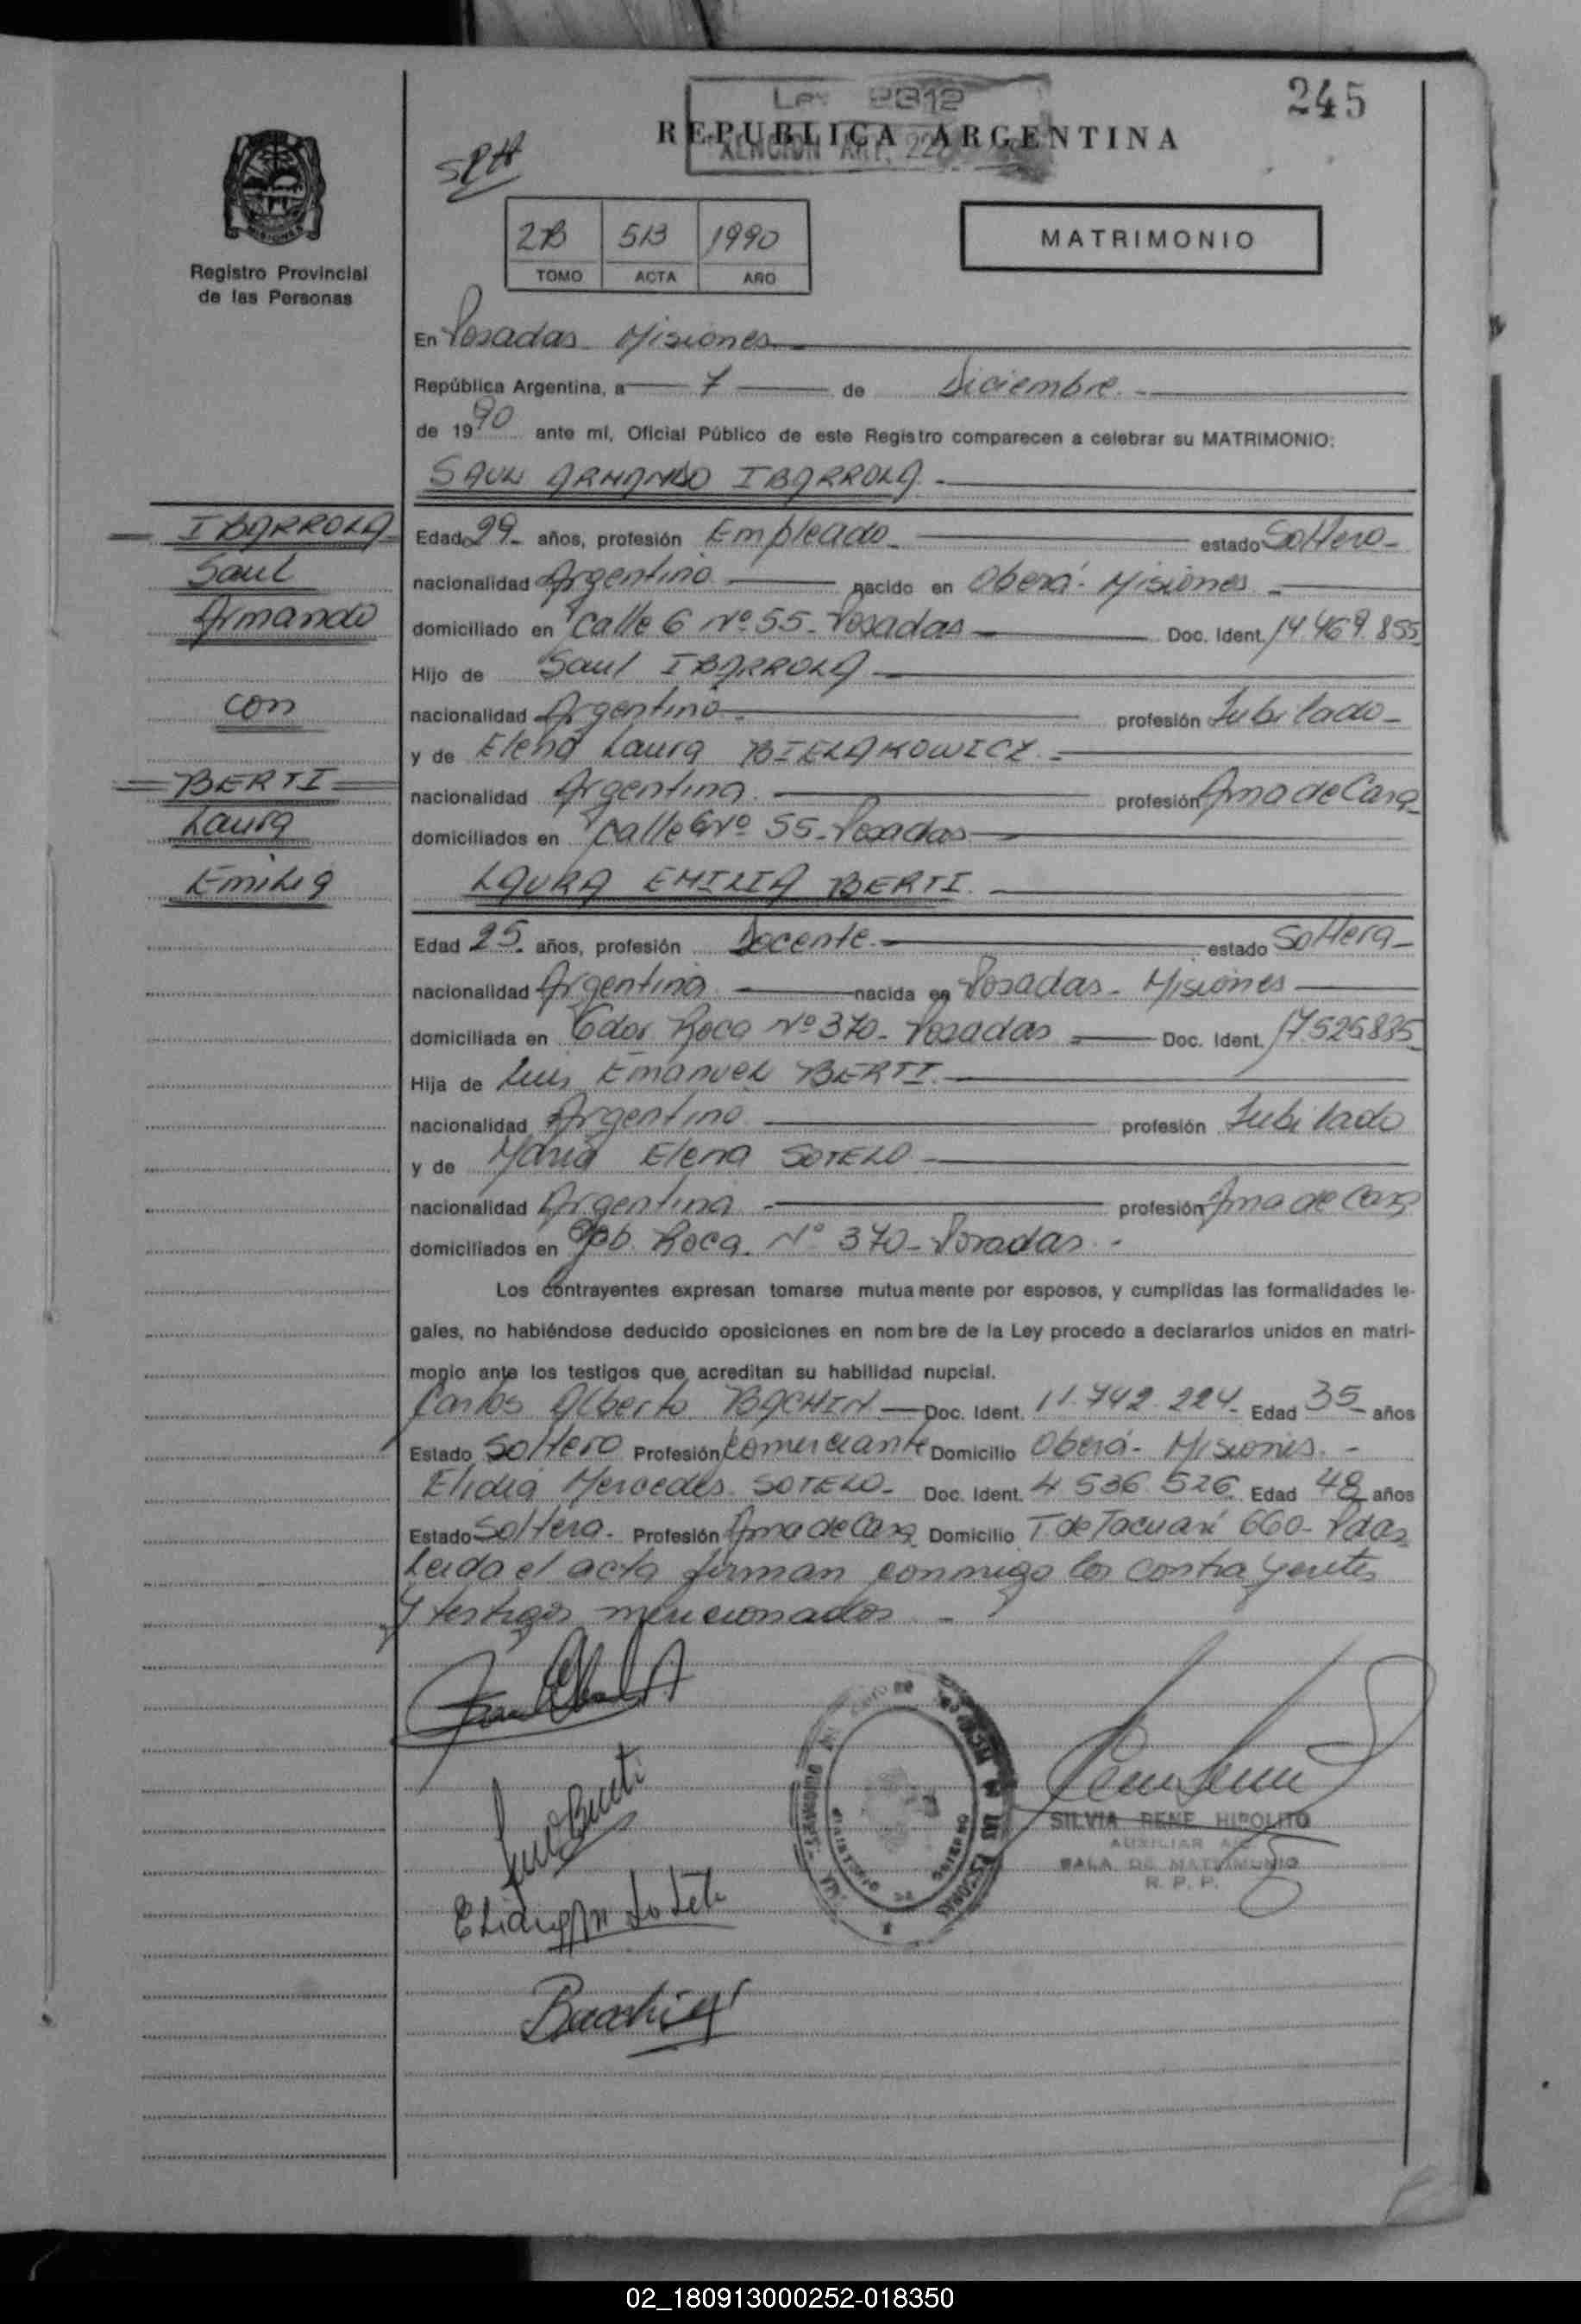 245
Ley 2312
REPUBLICA ARGENTINA
2B 513 1990
TOMO ACTA AÑO
MATRIMONIO
Registro Provincial
de las Personas
En Posadas Misiones
República Argentina, a 7 de Diciembre.
de 1990 ante mí, Oficial Público de este Registro comparecen a celebrar su MATRIMONIO:
SAUL ARMANDO IBARROLA.
IBARROLA
Saul
Armando
con
BERTI
Laura
Emilia
Edad 29 años, profesión Empleado estado Soltero
nacionalidad Argentino nacido en Oberá - Misiones
domiciliado en Calle 6 Nº 55 - Posadas Doc. Ident. 14.469.855
Hijo de Saul IBARROLA
nacionalidad Argentino profesión Jubilado
y de Elena Laura BIELAKOWICZ
nacionalidad Argentina profesión Ama de Casa
domiciliados en Calle 6 Nº 55 - Posadas
LAURA EMILIA BERTI.
Edad 25 años, profesión Docente estado Soltera
nacionalidad Argentina nacida en Posadas - Misiones
domiciliada en Gdor Roca Nº 370 - Posadas Doc. Ident. 17.525.835
Hija de Luis Emanuel BERTI.
nacionalidad Argentino profesión Jubilado
y de María Elena SOTELO
nacionalidad Argentina profesión Ama de Casa
domiciliados en Gob. Roca Nº 370 - Posadas
Los contrayentes expresan tomarse mutuamente por esposos, y cumplidas las formalidades le-
gales, no habiéndose deducido oposiciones en nombre de la Ley procedo a declararlos unidos en matri-
monio ante los testigos que acreditan su habilidad nupcial.
Carlos Alberto BACHIN Doc. Ident. 11.742.224 Edad 35 años
Estado Soltero Profesión Comerciante Domicilio Oberá - Misiones
Elidia Mercedes SOTELO Doc. Ident. 4.536.526 Edad 48 años
Estado Soltera Profesión Ama de Casa Domicilio T. de Tacuarí 660 - Pdas
Leida el acta firman conmigo los contrayentes
y testigos mencionados
SILVIA RENE HIPOLITO
AUXILIAR
SALA DE MATRIMONIO
R. P. P.
02_180913000252-018350